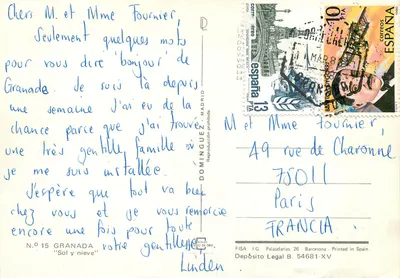 Cheri M. et Mme Fournier,
Seulement quelques mots
pour vous dire 'bonjour' de
Granada. Je suis là depuis
une semaine. J'ai eu de la
chance parce que j'ai trouvé
une très gentille famille où
je me suis installée.
J'espère que tout va bien
chez vous et je vous remercie
encore une fois pour toute
votre gentillesse
Linden
N.º 15 GRANADA
"Sol y nieve"
DOMINGUEZ - MADRID
correos
españa
13
PTA
10
PTA
correos
ESPAÑA
M et Mme Fournier,
49 rue de Charonne
75011
Paris
FRANCIA
FISA I.G. Palaudarias, 26 Barcelona - Printed in Spain
Depósito Legal B. 54681-XV